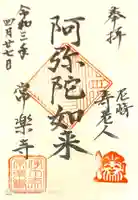 奉拝
尼崎
寿老人
阿弥陀如来
常楽寺
令和三年
四月廿七日